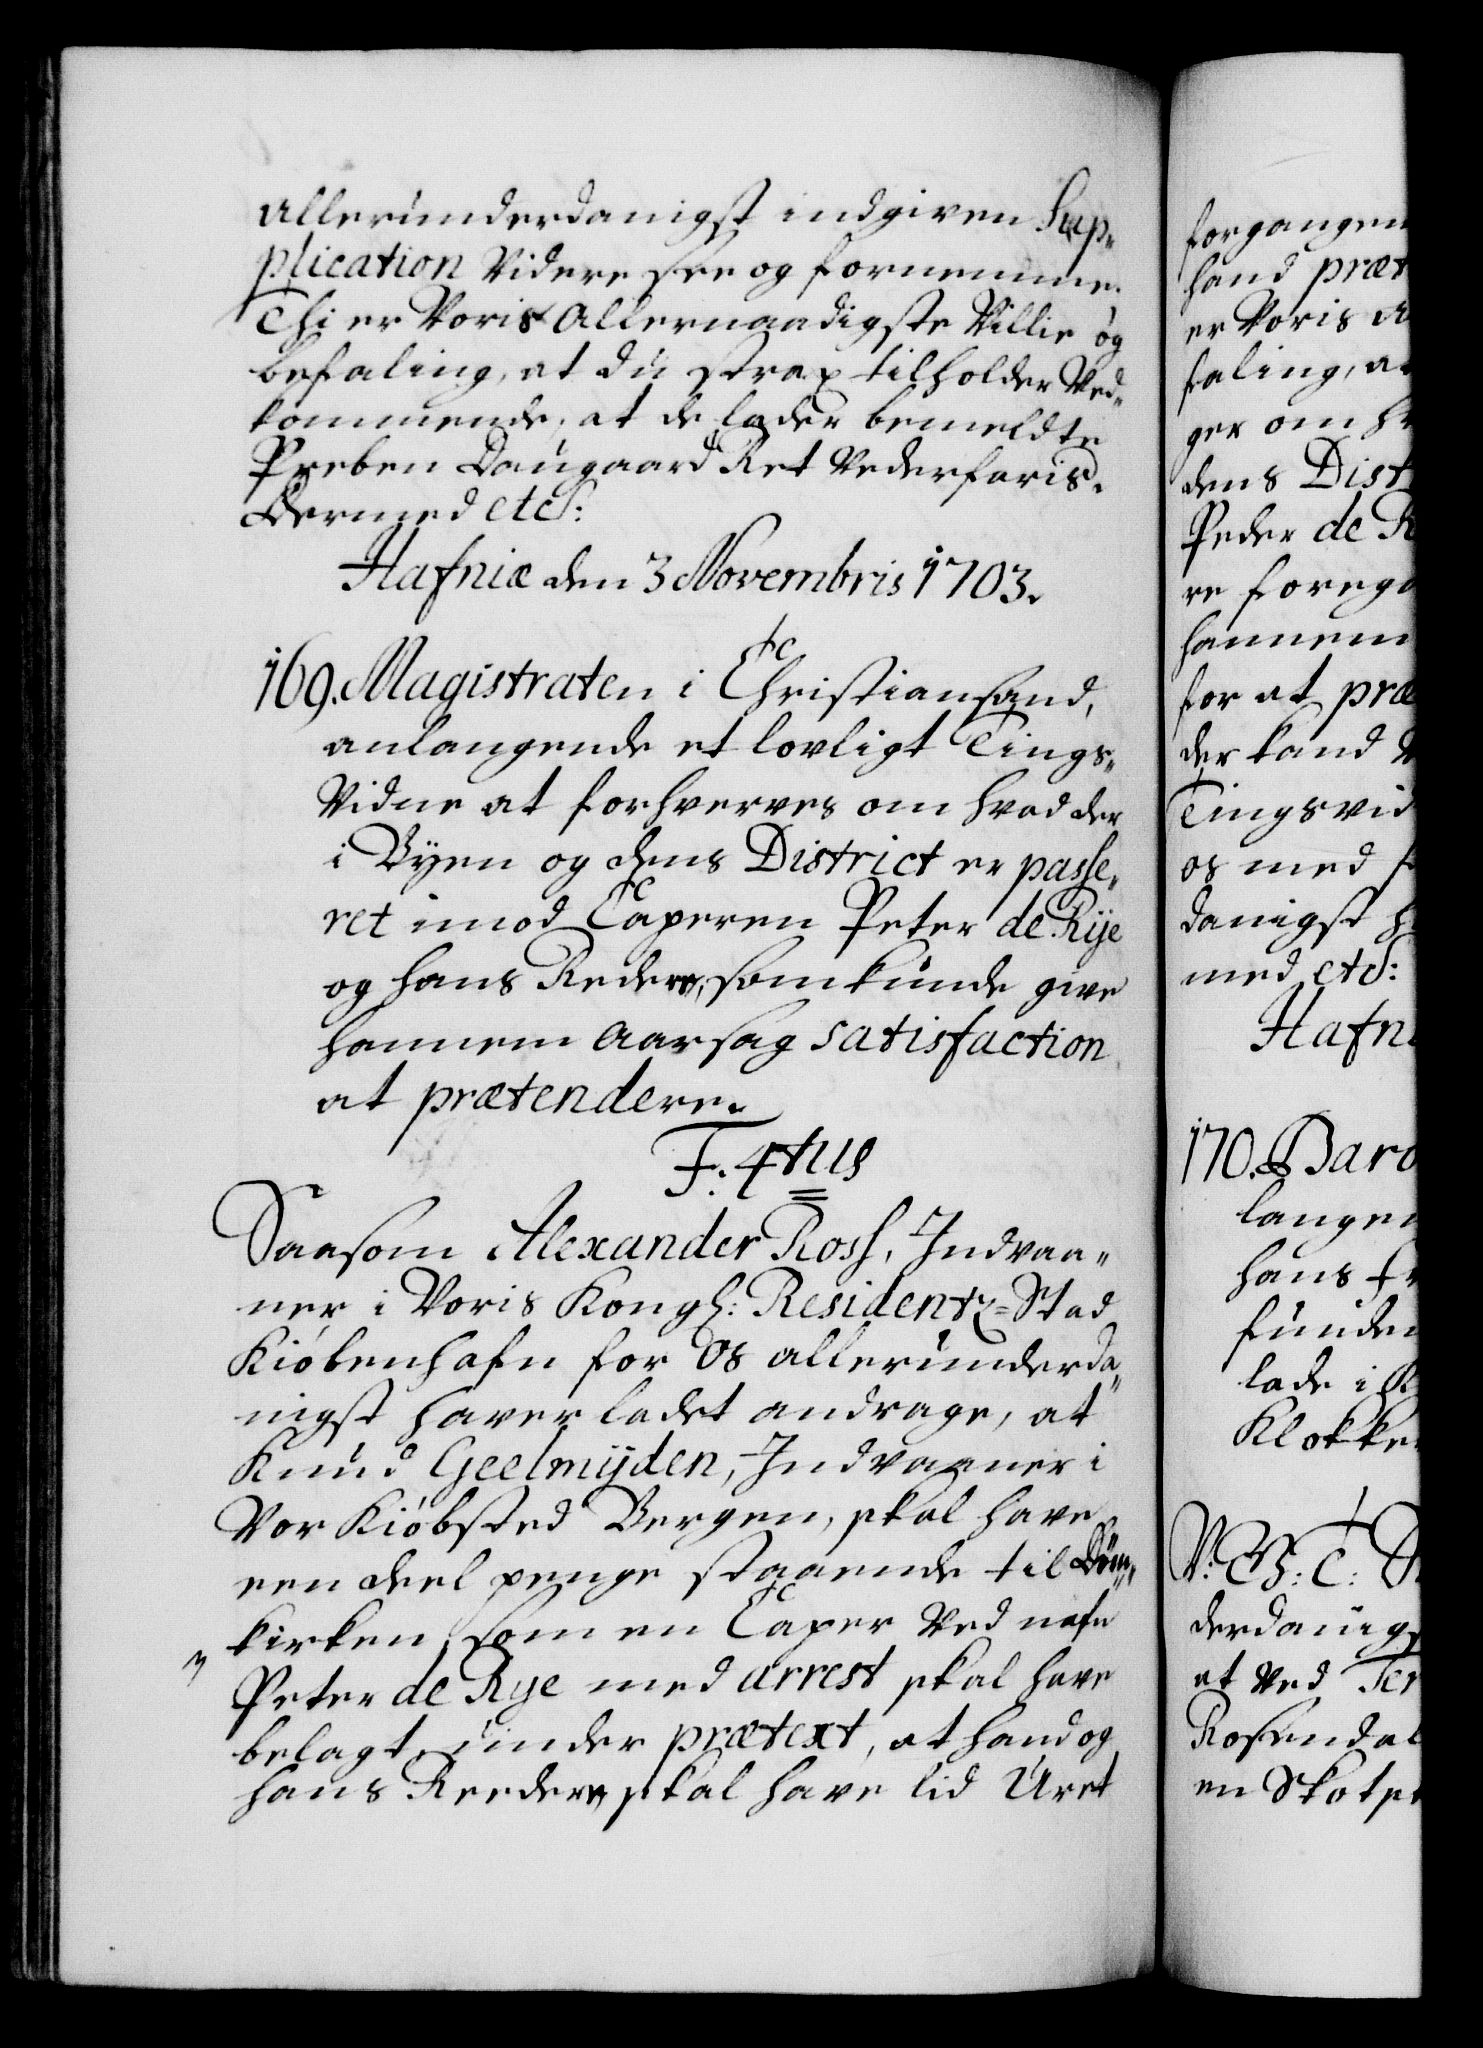 allerunderdanigst indgiven Sup-
plication videre see og fornemme.
Thi er Voris allernaadigste Villie og
befaling, at du strax tilholder Ved-
kommende, at de lader bemeldte
Preben Daugaard Ret vederfaris.
Dermed etc:
Hafniæ den 3 Novembris 1703.
169. Magistraten i Christiansand,
anlangende et lovligt Tings-
Vidne at forhverves om hvad der
i Byen og dens District er passe-
ret imod Caperen Peter de Rije
og hans Redere, som kunde give
hannem Aarsag satisfaction
at prætendere.
F. 4tus
Saasom Alexander Ross, Indvaa-
ner i Voris Kongl: Residentz-Stad
Kiöbenhafn for Os allerunderda-
nigst haver ladet andrage, at
Knud Geelmijden, Indvaaner i
Vor Kiöbsted Bergen, skal have
een deel penge staaende til Döm-
kirken som en Caper ved nafn
Peter de Rye med arrest skal have
belagt, under prætext, at hand og
hans Reedere skal have lid Uret
forgangen
hand præt
er Voris A
faling, at
ger om h
dens Dist
Peder de R
re forega
hannem
for at præ
der kand
Tingsvid
os med
danigst h
med etc:
Hafn
170. Baro
langen
hans fr
funden
lade i K
Klokke
V: G: C: S
derdanigs
at ved Ter
Rosendal
en Skotsk